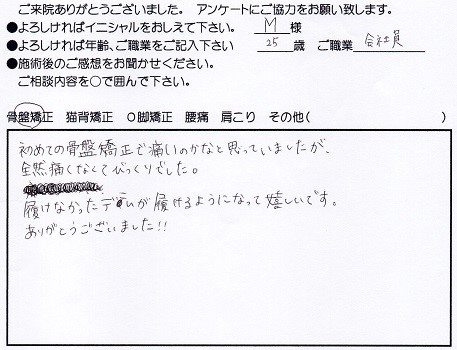 ご来院ありがとうございました。 アンケートにご協力をお願い致します。
●よろしければイニシャルをおしえて下さい。 M 様
●よろしければ年齢、ご職業をご記入下さい 25 歳 ご職業 会社員
●施術後のご感想をお聞かせください。
ご相談内容を○で囲んで下さい。
骨盤矯正 猫背矯正 O脚矯正 腰痛 肩こり その他( )
初めての骨盤矯正で痛いのかなと思っていましたが、
全然痛くなくてびっくりでした。
履けなかったデニムが履けるようになって嬉しいです。
ありがとうございました!!